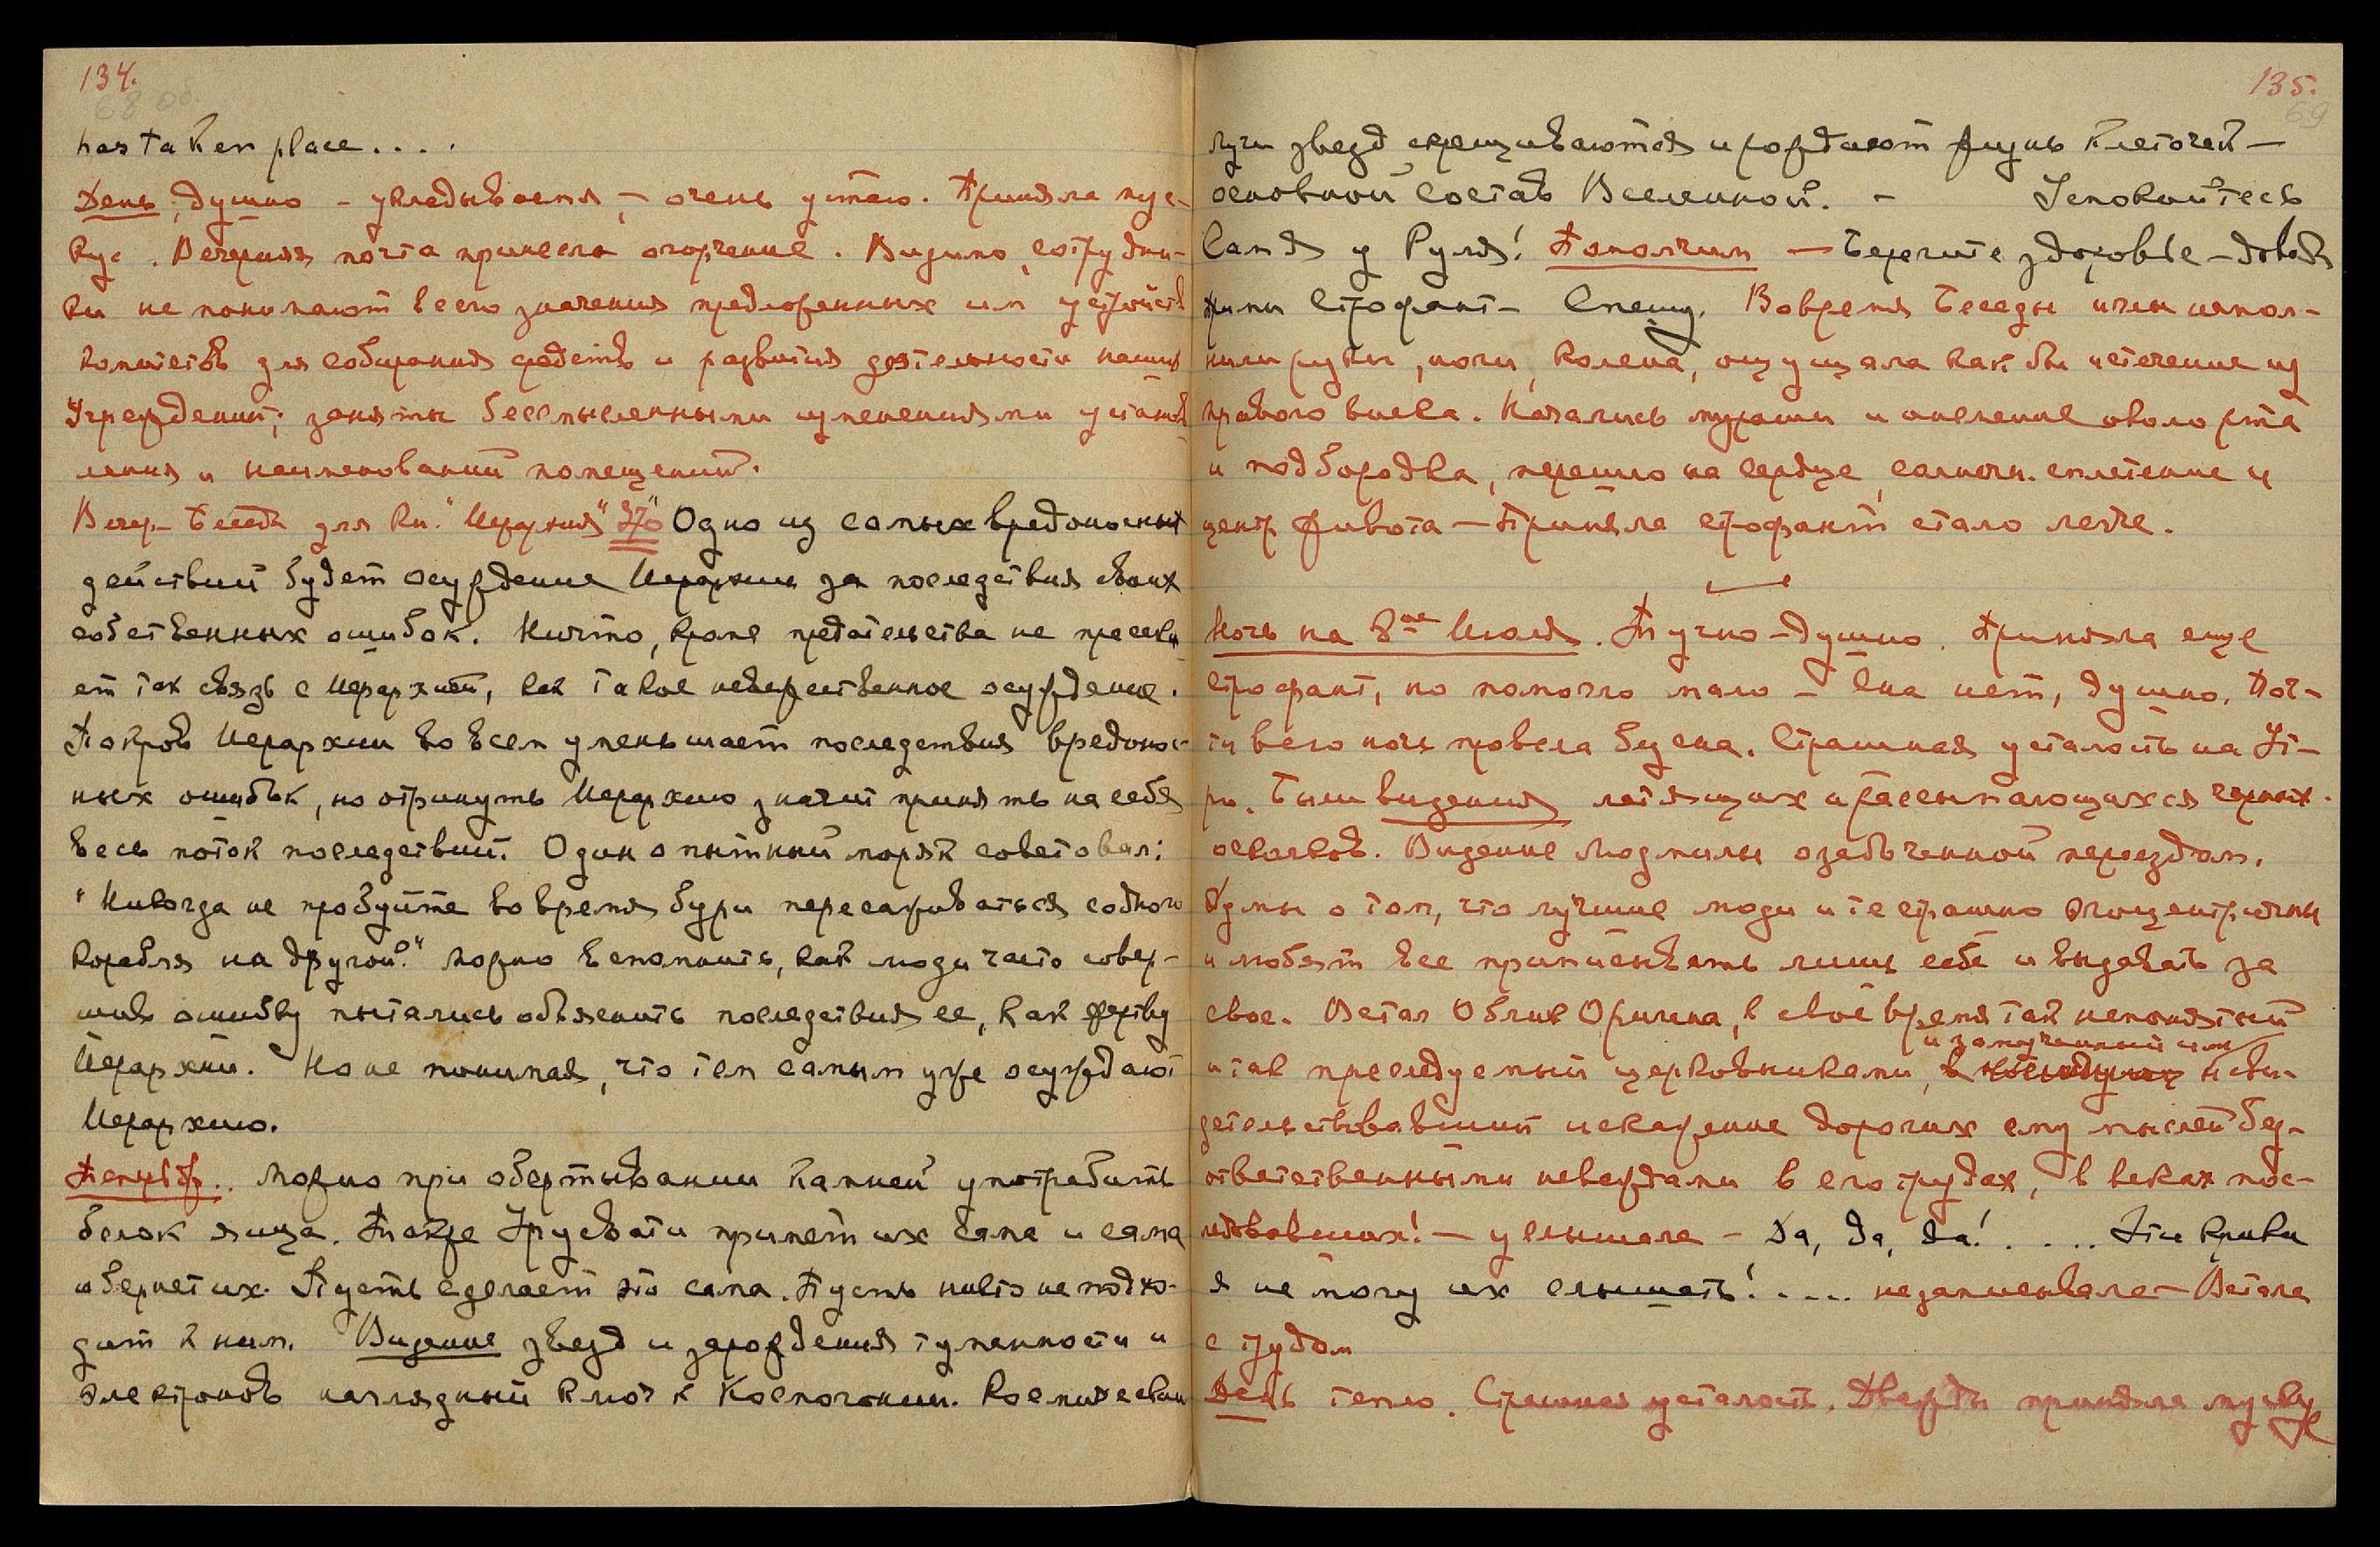 134.
68 об.
has taken place....
День, душно – укладываемся, – очень устаю. Приняла мус-
кус. Вечерняя почта принесла огорчение. Видимо, сотрудни-
ки не понимают всего значения предложенных им устройств
комитетов для собирания средств и развития деятельности наших
Учреждений; заняты бессмысленными изменениями установ-
ления и наименований помещений.
Вечер – Беседа для кн. "Иерархия" 370 Одно из самых вредоносных
действий будет осуждение Иерархии за последствия своих
собственных ошибок. Ничто, кроме предательства не пресека-
ет так связь с Иерархией, как такое невежественное осуждение.
Покров Иерархии во всем уменьшает последствия вредонос-
ных ошибок, но отринуть Иерархию значит принять на себя
весь поток последствий. Один опытный моряк советовал:
"Никогда не пробуйте во время бури пересаживаться с одного
корабля на другой." Можно вспомнить, как люди часто совер-
шив ошибку пытались объяснить последствия ее, как жертву
Иерархии. Но не понимая, что тем самым уже осуждают
Иерархию.
Можно при обертывании камней употребить
белок яйца. Также Урусвати примет их сама и сама
обернет их. Пусть сделает это сама. Пусть никто не подхо-
дит к ним. Видение звезд и зарождения туманности и
электронов наглядный ключ к Космогонии. Космические
135.
69
лучи звезд скрещиваются и рождают жизнь клеточек –
основной состав Вселенной. – Успокойтесь
Сам Я у Руля! Помолчим – Берегите здоровье –
прими Строфант – Спешу. Во время Беседы иглы напол-
нили руки, ноги, колена, ощущала как бы истечение из
правого виска. Начались мураши и онемение около рта
и подбородка, перешло на сердце, солнечн. сплетение и
центр живота – Приняла строфант стало легче.
Ночь на 8ое Июля. Тучно – душно. Приняла еще
строфант, но помогло мало – Сна нет, душно. Поч-
ти всю ночь провела без сна. Страшная усталость на Ут-
ро. Были видения летящих и рассыпающихся черных
осколков. Видение Людмилы озабоченной переездом.
Думы о том, что лучшие люди и те страшно эгоцентричны
и любят все приписывать лишь себе и выдавать за
свое. Встал Облик Оригена, в свое время так непонятый
и замученный ими
и так преследуемый церковниками, и сви-
детельствовавший искажение дорогих ему мыслей без-
ответственными невеждами в его трудах, в веках пос-
ледовавших! – услышала – Да, да, да!.... Эти крики
я не могу их слышать!.... не записывала – Встала
с трудом
День тепло. Страшная усталость. Дважды приняла мускус